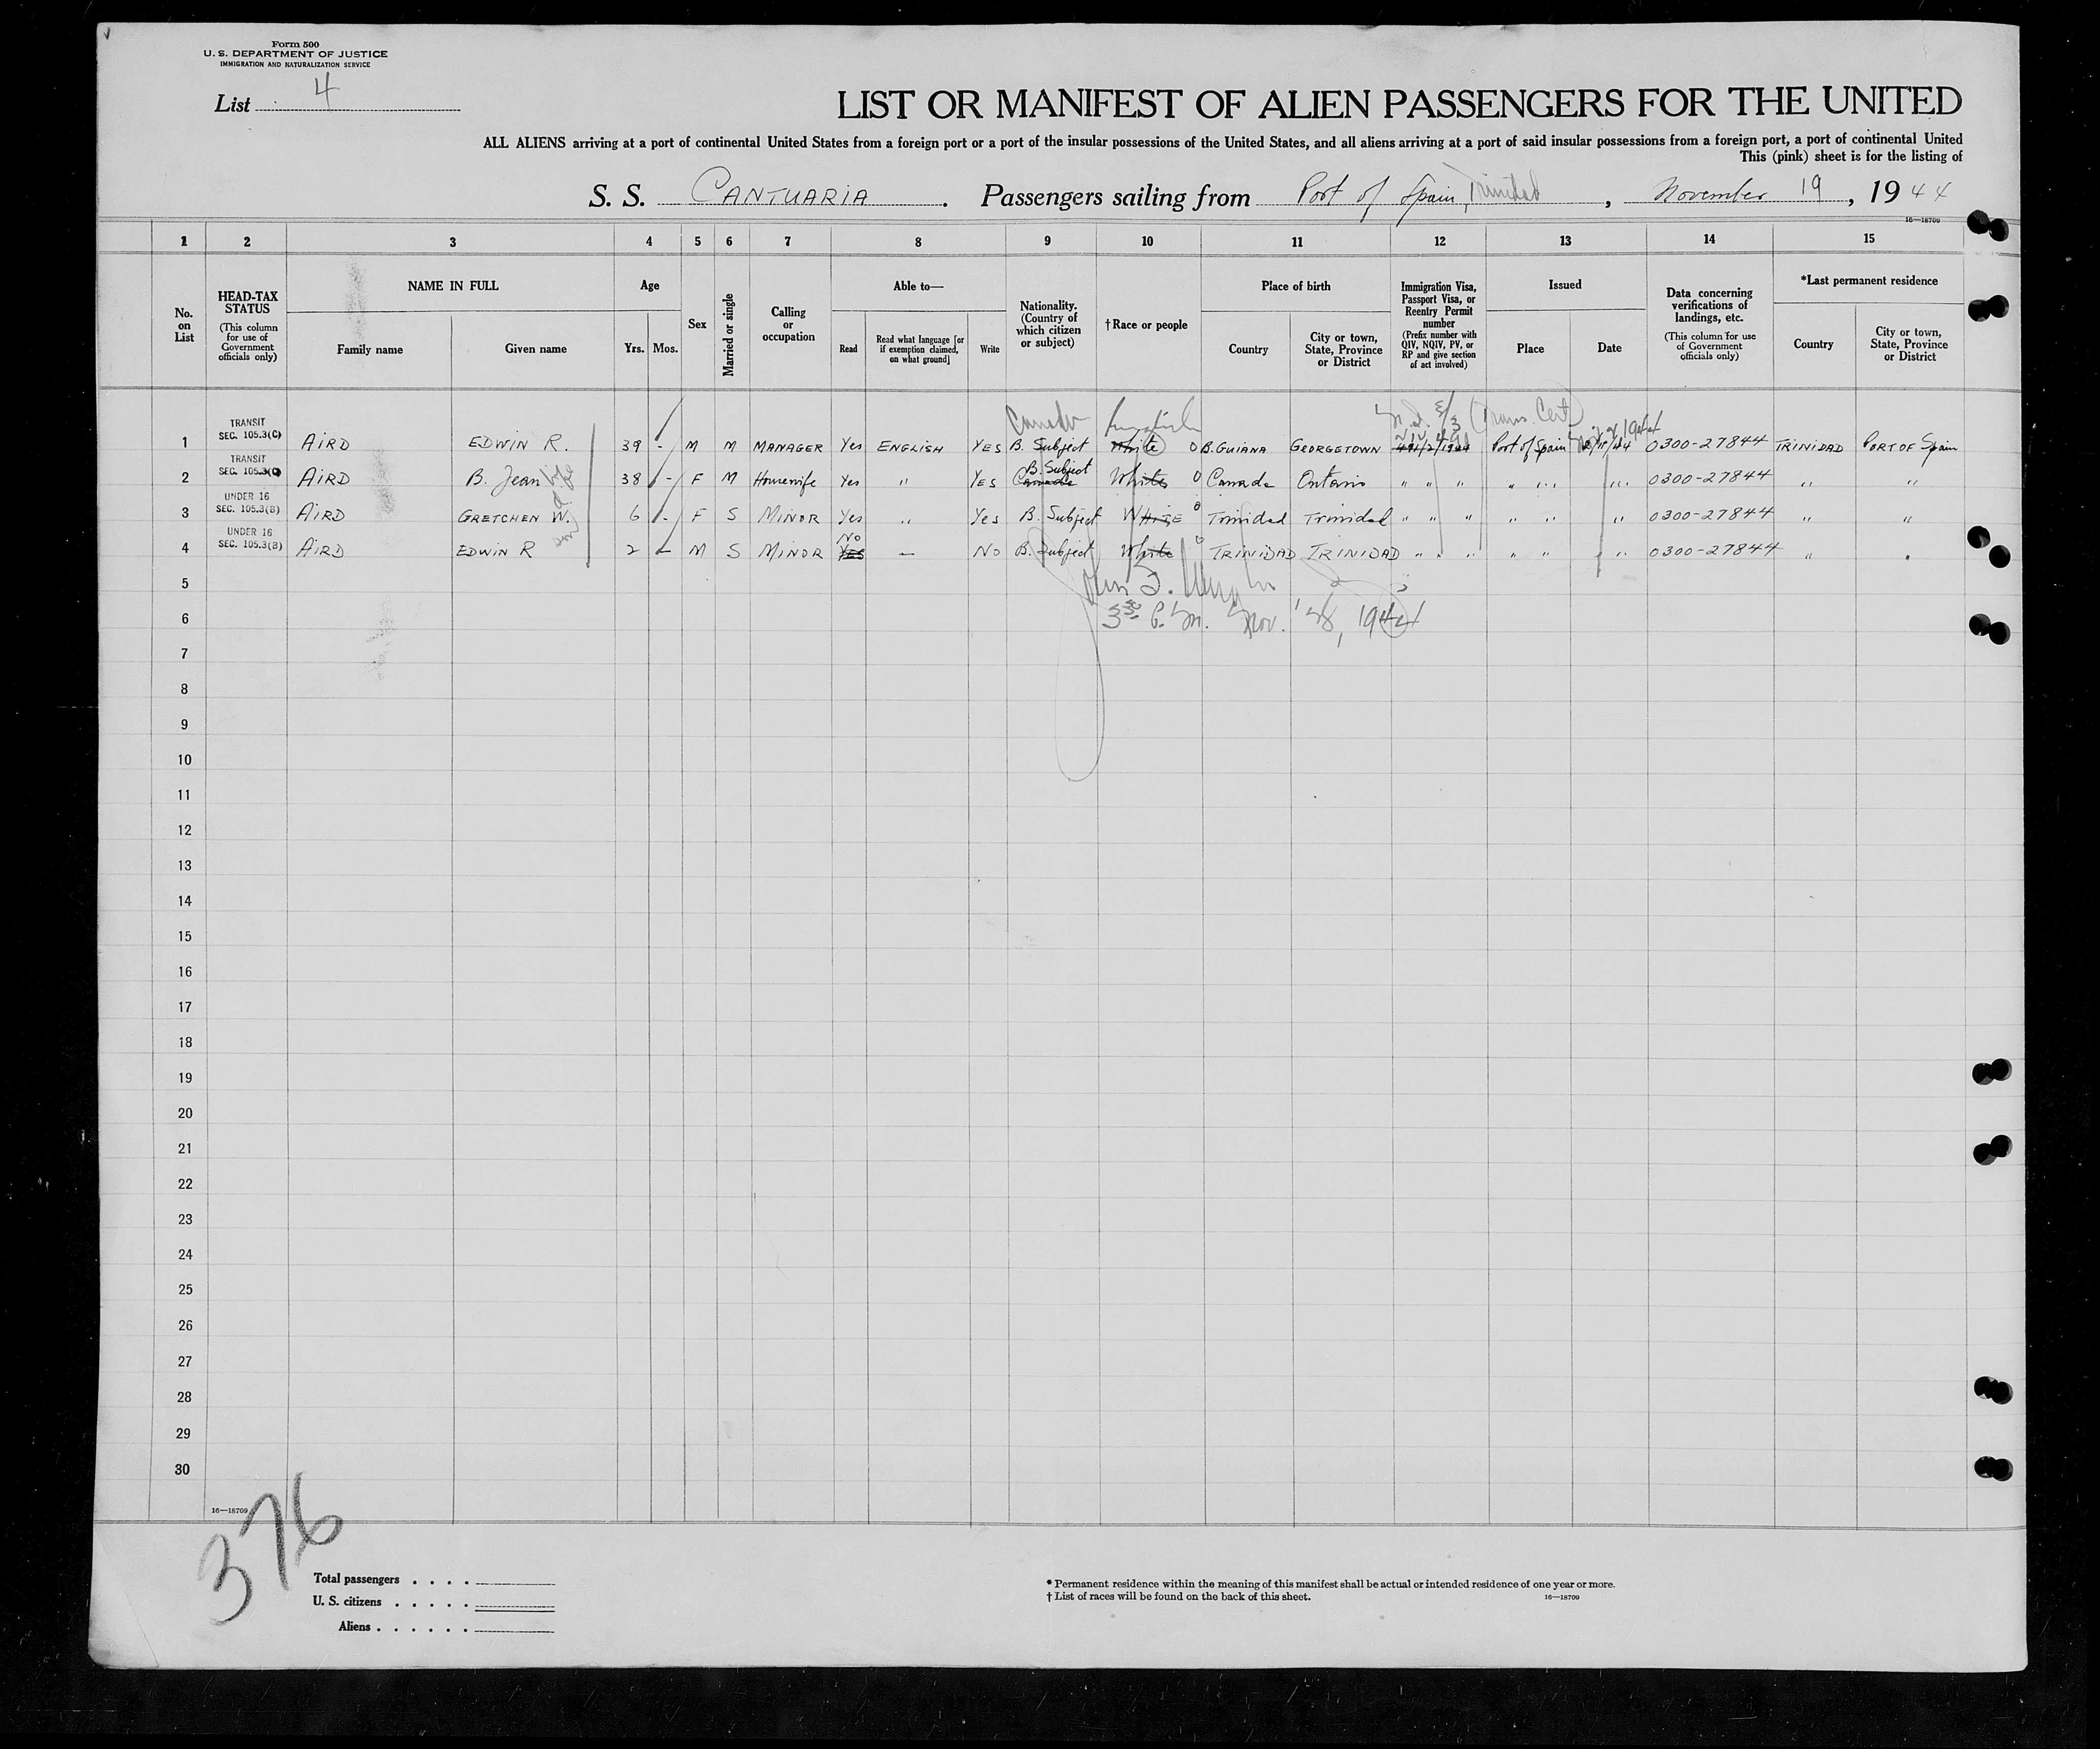 Form 500
U. S. DEPARTMENT OF JUSTICE
IMMIGRATION AND NATURALIZATION SERVICE
List 4
LIST OR MANIFEST OF ALIEN PASSENGERS FOR THE UNITED
ALL ALIENS arriving at a port of continental United States from a foreign port or a port of the insular possessions of the United States, and all aliens arriving at a port of said insular possessions from a foreign port, a port of continental United
This (pink) sheet is for the listing of
S. S. CANTUARIA. Passengers sailing from Port of Spain, Trinidad, November 19, 1944
16—18709
1 2 3 4 5 6 7 8 9 10 11 12 13 14 15
No. on List
HEAD-TAX STATUS (This column for use of Government officials only)
NAME IN FULL
Family name Given name
Age
Yrs. Mos.
Sex
Married or single
Calling or occupation
Able to—
Read
Read what language [or if exemption claimed, on what ground]
Write
Nationality. (Country of which citizen or subject)
†Race or people
Place of birth
Country
City or town, State, Province or District
Immigration Visa, Passport Visa, or Reentry Permit number (Prefix number with QIV, NQIV, PV, or RP and give section of act involved)
Issued
Place Date
Data concerning verifications of landings, etc. (This column for use of Government officials only)
*Last permanent residence
Country
City or town, State, Province or District
Canada 3/3 (Trans. Cert)
TRANSIT
SEC. 105.3(C)
1 AIRD EDWIN R. 39 - M M MANAGER Yes ENGLISH YES B. Subject White B. GUIANA GEORGETOWN Port of Spain 0300-27844 TRINIDAD PORT OF Spain
TRANSIT
SEC. 105.3(C)
B. Subject
2 AIRD B. Jean wife 38 - F M Housewife Yes " YES Canada White Canada Ontario " " " " " " " 0300-27844 " "
UNDER 16
SEC. 105.3(B)
3 AIRD GRETCHEN W. d 6 - F S MINOR Yes " Yes B. Subject WHITE Trinidad Trinidad " " " " " " 0300-27844 " "
UNDER 16
SEC. 105.3(B)
No
4 AIRD EDWIN R son 2 - M S MINOR YES — No B. Subject White TRINIDAD TRINIDAD " " " " " " 0300-27844 " "
5
3 P.M. Nov. 28, 1944
6
7
8
9
10
11
12
13
14
15
16
17
18
19
20
21
22
23
24
25
26
27
28
29
30
16—18709
376
Total passengers . . . .
U. S. citizens . . . . .
Aliens . . . . . .
* Permanent residence within the meaning of this manifest shall be actual or intended residence of one year or more.
† List of races will be found on the back of this sheet.
16—18709